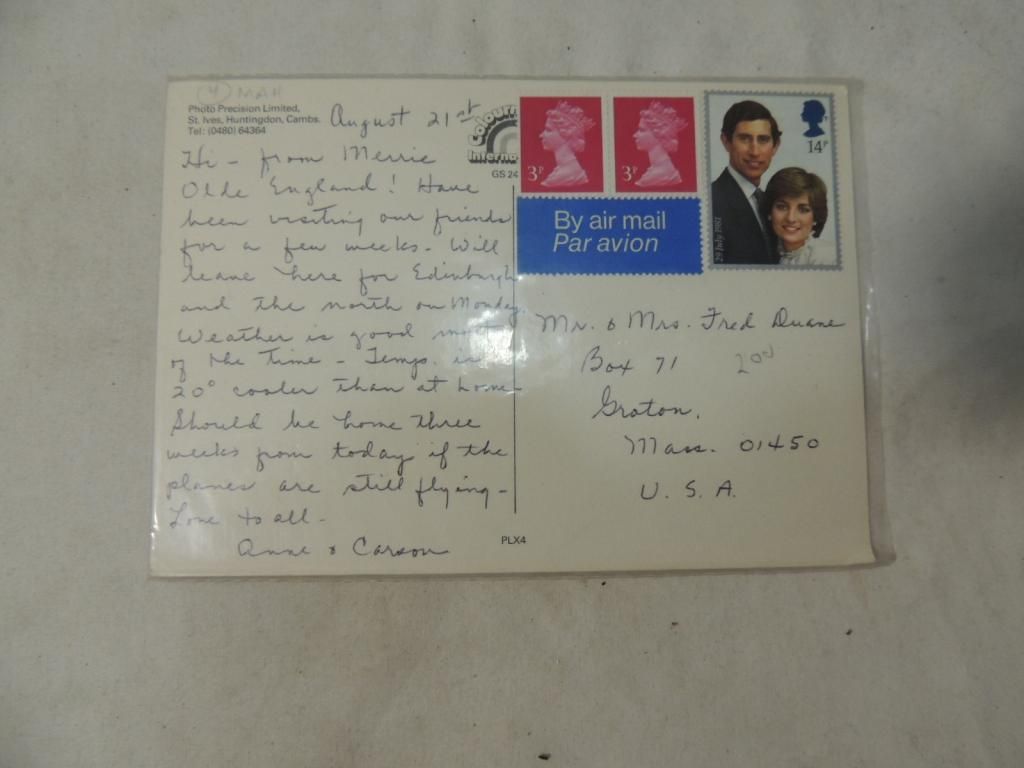 (4) MAH
Photo Precision Limited,
St. Ives, Huntingdon, Cambs.
Tel: (0480) 64364
August 21st
Hi - from Merrie
Olde England! Have
been visiting our friends
for a few weeks. Will
leave here for Edinburgh
and the north on Monday.
Weather is good most
of the time - Temps. is
20° cooler than at home
Should be home three
weeks from today if the
planes are still flying -
Love to all -
Anne & Carson
Colour
Interna
GS 24
3P
3P
14P
29 July 1981
By air mail
Par avion
Mr. & Mrs. Fred Duane
Box 71
Groton,
Mass. 01450
U. S. A.
PLX4